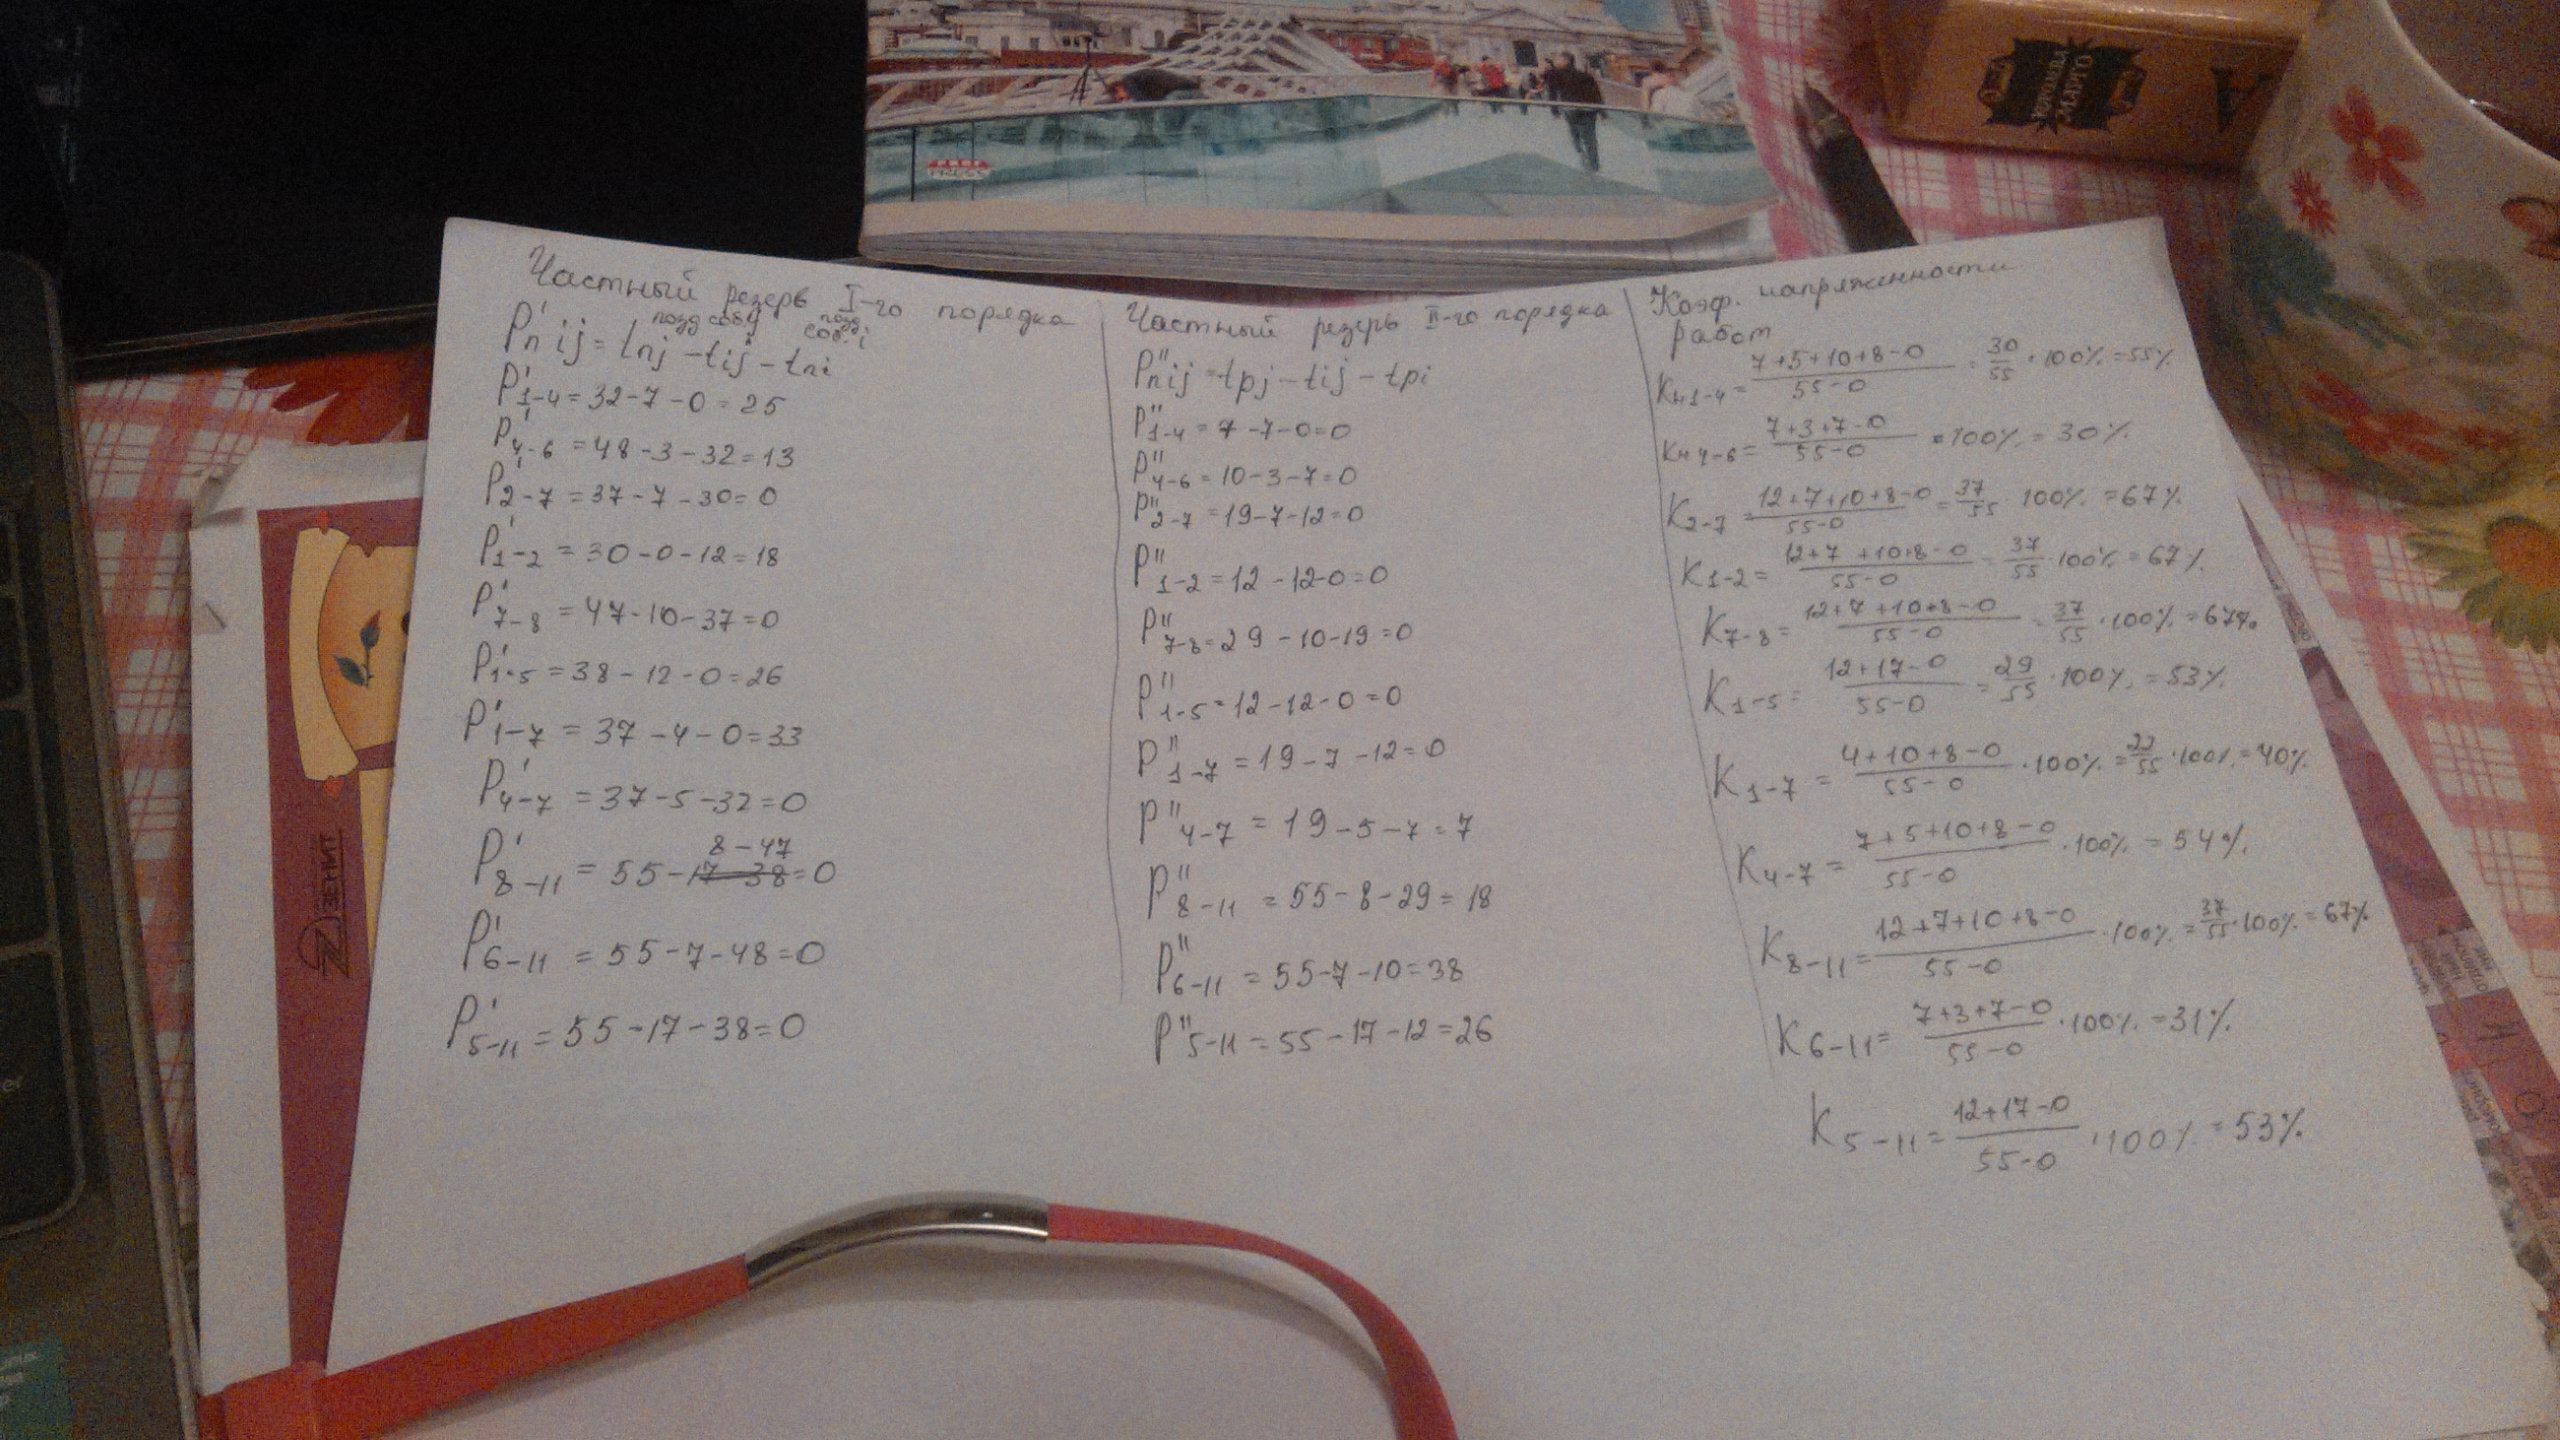 PRESS
КОРОЛЕВА
МАРГО
Частный резерв I-го порядка
позд соб j позд соб. i
P'п ij = tпj - tij - tпi
P'1-4 = 32-7-0 = 25
P'4-6 = 48-3-32=13
P'2-7 = 37-7-30=0
P'1-2 = 30-0-12=18
P'7-8 = 47-10-37=0
P'1-5 = 38-12-0=26
P'1-7 = 37-4-0=33
P'4-7 = 37-5-32=0
8-47
P'8-11 = 55-17-38=0
P'6-11 = 55-7-48=0
P'5-11 = 55-17-38=0
Частный резерв II-го порядка
P''пij = tpj - tij - tpi
P''1-4 = 7-7-0=0
P''4-6 = 10-3-7=0
P''2-7 = 19-7-12=0
P''1-2 = 12-12-0=0
P''7-8 = 29-10-19=0
P''1-5 = 12-12-0=0
P''1-7 = 19-7-12=0
P''4-7 = 19-5-7=7
P''8-11 = 55-8-29=18
P''6-11 = 55-7-10=38
P''5-11 = 55-17-12=26
Коэф. напряженности
работ
Kн1-4 = 7+5+10+8-0/55-0 = 30/55 · 100% = 55%
Kн4-6 = 7+3+7-0/55-0 · 100% = 30%
K2-7 = 12+7+10+8-0/55-0 = 37/55 · 100% = 67%
K1-2 = 12+7+10+8-0/55-0 = 37/55 · 100% = 67%
K7-8 = 12+7+10+8-0/55-0 = 37/55 · 100% = 67%
K1-5 = 12+17-0/55-0 = 29/55 · 100% = 53%
K1-7 = 4+10+8-0/55-0 · 100% = 22/55 · 100% = 40%
K4-7 = 7+5+10+8-0/55-0 · 100% = 54%
K8-11 = 12+7+10+8-0/55-0 · 100% = 37/55 · 100% = 67%
K6-11 = 7+3+7-0/55-0 · 100% = 31%
K5-11 = 12+17-0/55-0 · 100% = 53%
ЗЕНИТ